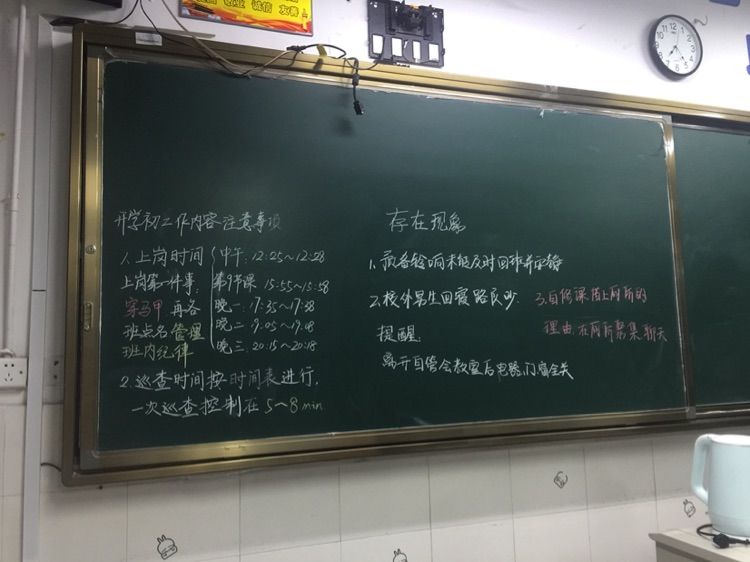 诚信 友善
开学初工作内容注意事项
1. 上岗时间 中午: 12:25~12:28
上岗第一件事: 第9节课 15:55~15:58
穿马甲 再各 晚一: 17:35~17:38
班点名 管理 晚二: 19:05~19:08
班内纪律 晚三: 20:15~20:18
2. 巡查时间按时间表进行,
一次巡查控制在5~8min
存在现象
1. 预备铃响未能及时回班并安静
2. 校外男生回寝路长吵
提醒:
离开自管会教室后电器、门窗全关
3. 自修课借上厕所的
理由在厕所聚集聊天